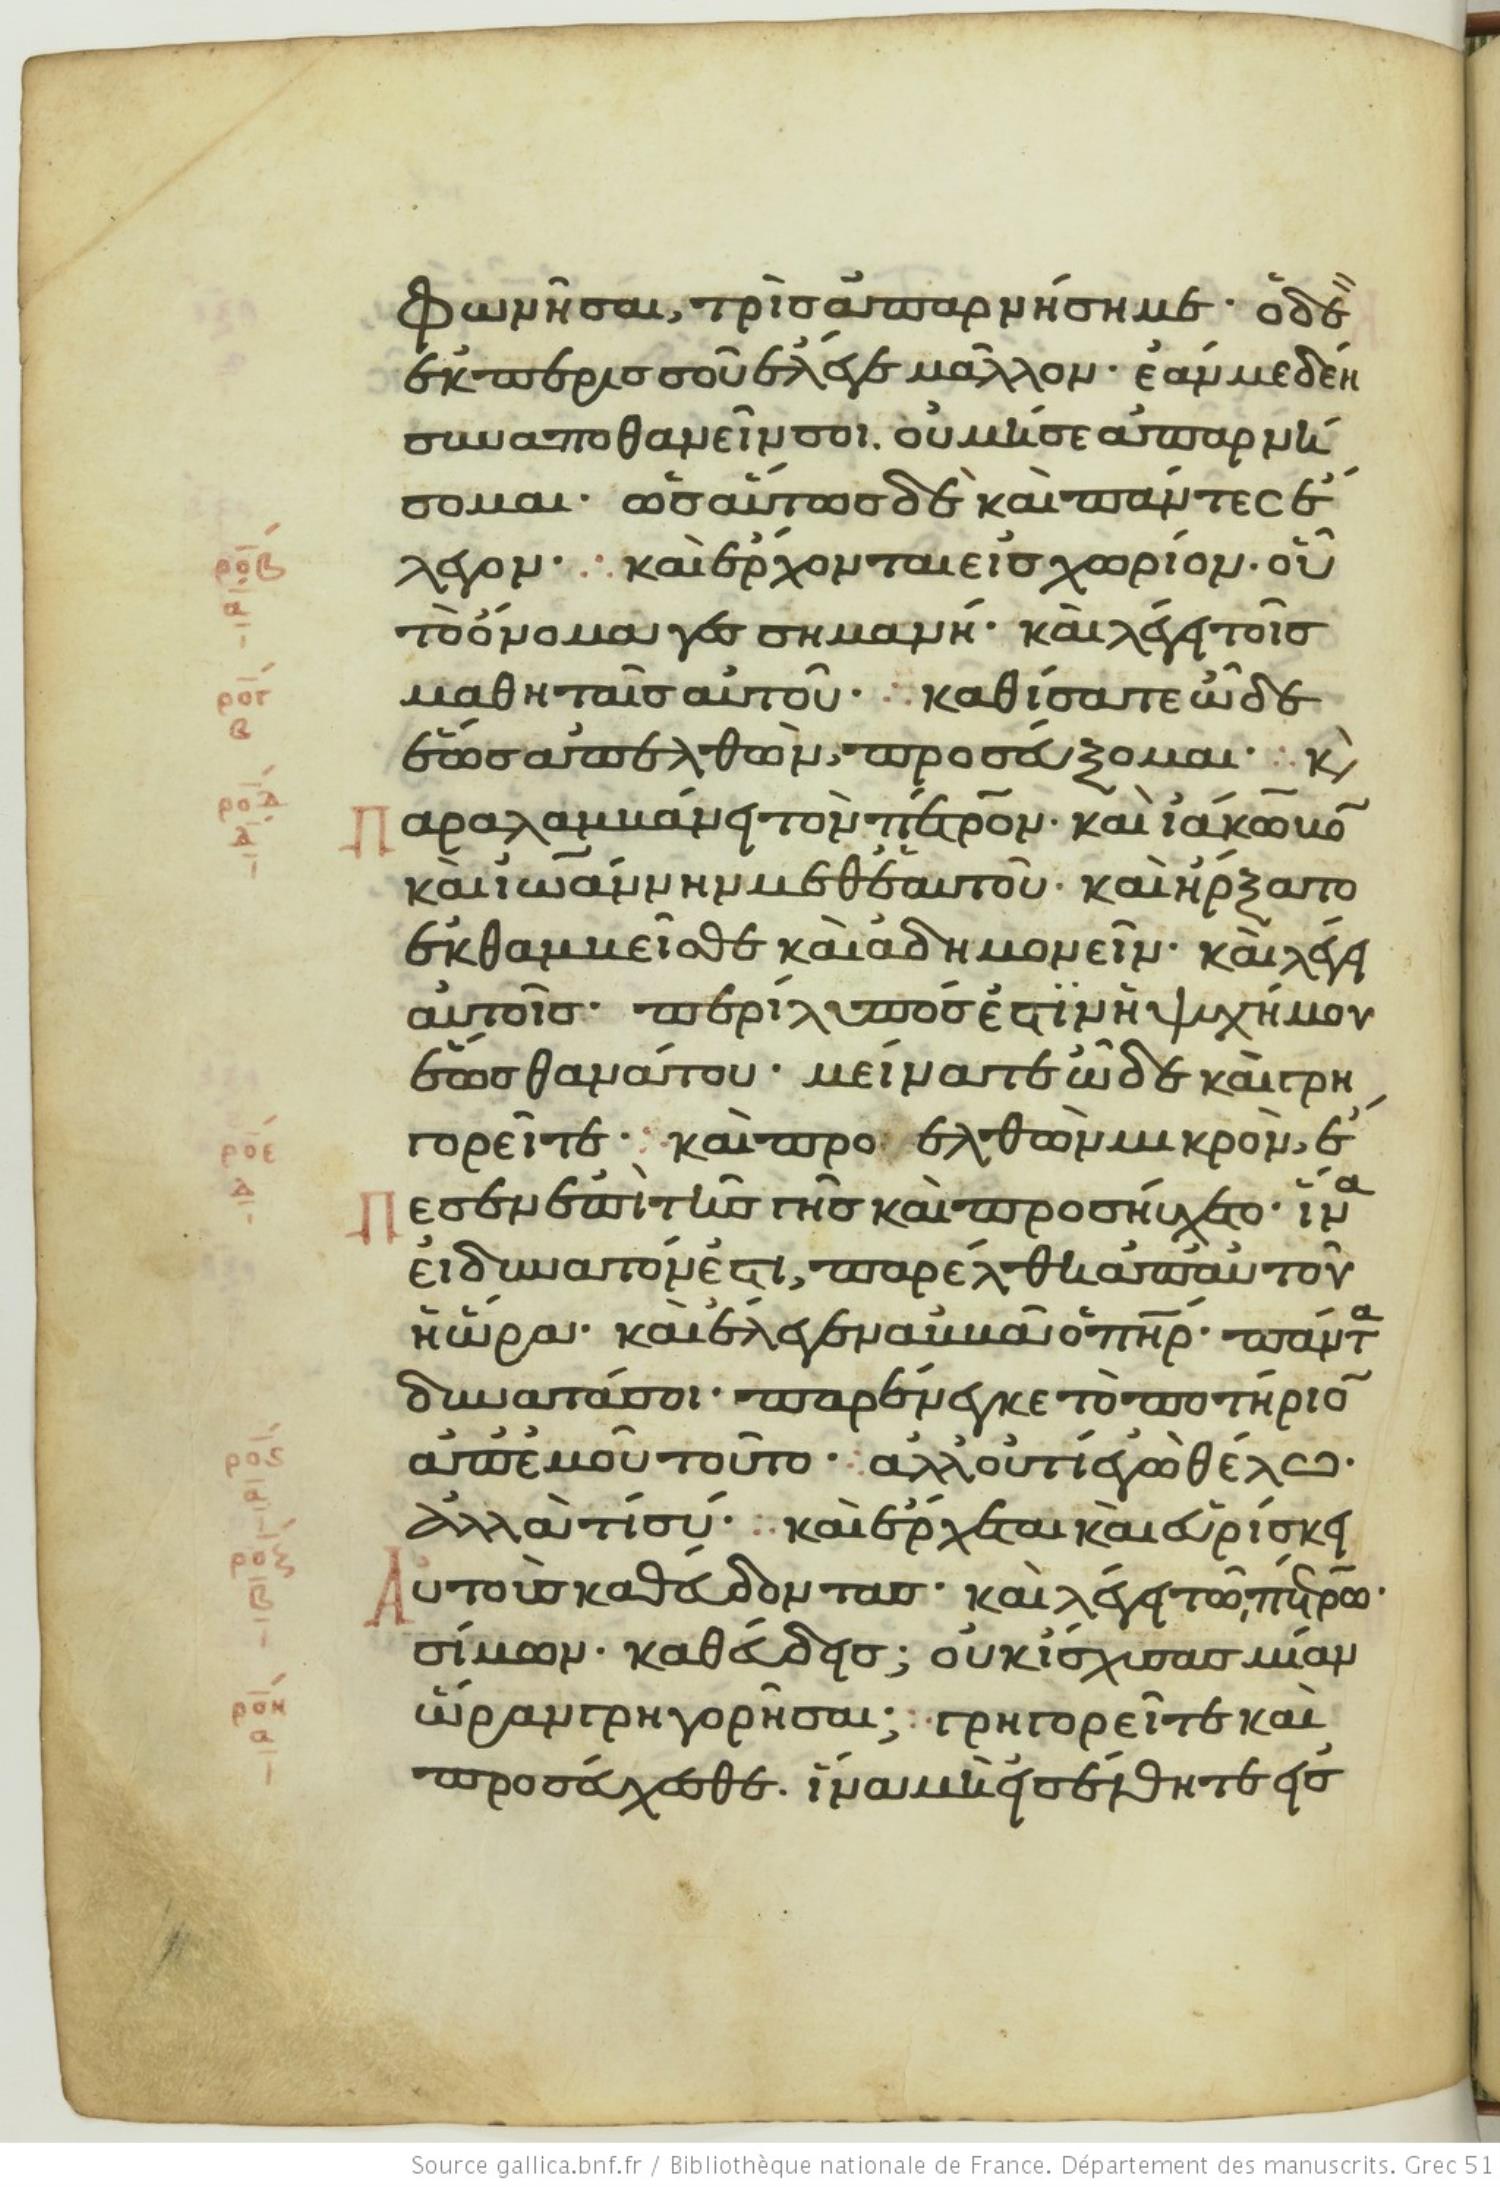 φωνῆσαι, τρὶς ἀπαρνήσῃ με· ὁ δὲ
ἐκ περισσοῦ ἔλεγε μᾶλλον· ἐάν με δέη
συναποθανεῖν σοι. οὐ μή σε ἀπαρνή
σομαι· ὡσαύτως δὲ καὶ πάντες ἔ
λεγον· ⁘ καὶ ἔρχονται εἰς χωρίον· οὗ
τὸ ὄνομα γεσσημανή· καὶ λέγει τοῖς
μαθηταῖς αὐτοῦ· ⁘ καθίσατε ὧδε
ἕως ἀπελθὼν, προσεύξομαι· ⁘ κὶ
Παραλαμβάνει τὸν πέτρον· καὶ ἰάκωβο̅
καὶ ἰωάννην μεθ' ἑαυτοῦ· καὶ ἤρξατο
ἐκθαμβεῖσθε καὶ ἀδημονεῖν· καὶ λέγει
αὐτοῖς· περίλυπός ἐστϊν ἡ ψυχή μου
ἕως θανάτου· μείνατε ὧδε καὶ γρη
γορεῖτε· ⁘ καὶ προ ελθὼν μικρὸν, ἔ
Πεσεν ἐπὶ τῆς γῆς καὶ προσηύχετο· ἵνα
εἰ δυνατόν ἐστι, παρέλθη ἀπ' αὐτοῦ
ἡ ὥρα· καὶ ἔλεγεν ἀββᾶ ὁ πη̅ρ· πάντα
δυνατά σοι· παρένεγκε τὸ ποτήριο̅
ἀπ' ἐμοῦ τοῦτο· ⁘ ἀλλ' οὐ τί ἐγὼ θέλω·
ἀλλὰ τί σύ· ⁘ καὶ ἔρχεται καὶ εὑρίσκει
Αὐτοὺς καθεύδοντας· καὶ λέγει τῶ πέτρω·
σίμων· καθεύδεις; οὐκ ἴσχυσας μίαν
ὥραν γρηγορῆσαι; ⁘ γρηγορεῖτε καὶ
προσεύχεσθε. ἵνα μὴ εἰσέλθητε εἰς
ροβ
α
ρογ
β
ροδ
δ
ροε
δ
ροϛ
α
ροζ
β
ροη
α
Source gallica.bnf.fr / Bibliothèque nationale de France. Département des manuscrits. Grec 51